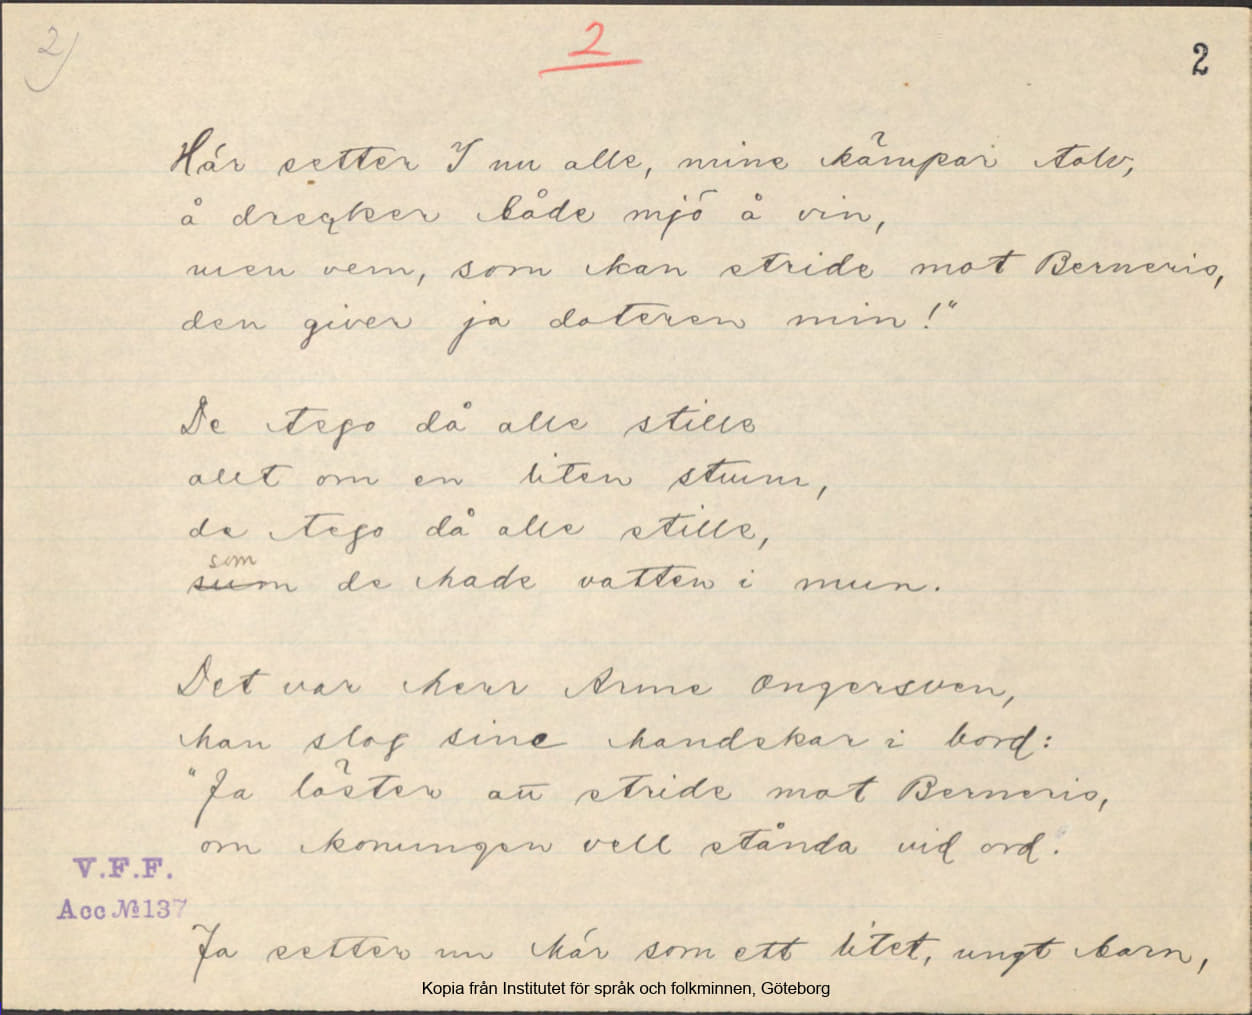 2)
2
2
Här setter I nu alle, mine kämpar tolv,
å dreqker både mjö å vin,
men vem, som kan stride mot Berneris,
den giver ja doteren min!"
De tego då alle stille
allt om en liten stunn,
de tego då alle stille,
som
sum de hade vatten i mun.
Det var herr Arme Ongersven,
han slog sine handskar i bord:
"Ja löster au stride mot Berneris,
om konungen vell stånda vid ord.
V.F.F.
Acc №137
Ja setter nu här som ett litet, ungt barn,
Kopia från Institutet för språk och folkminnen, Göteborg